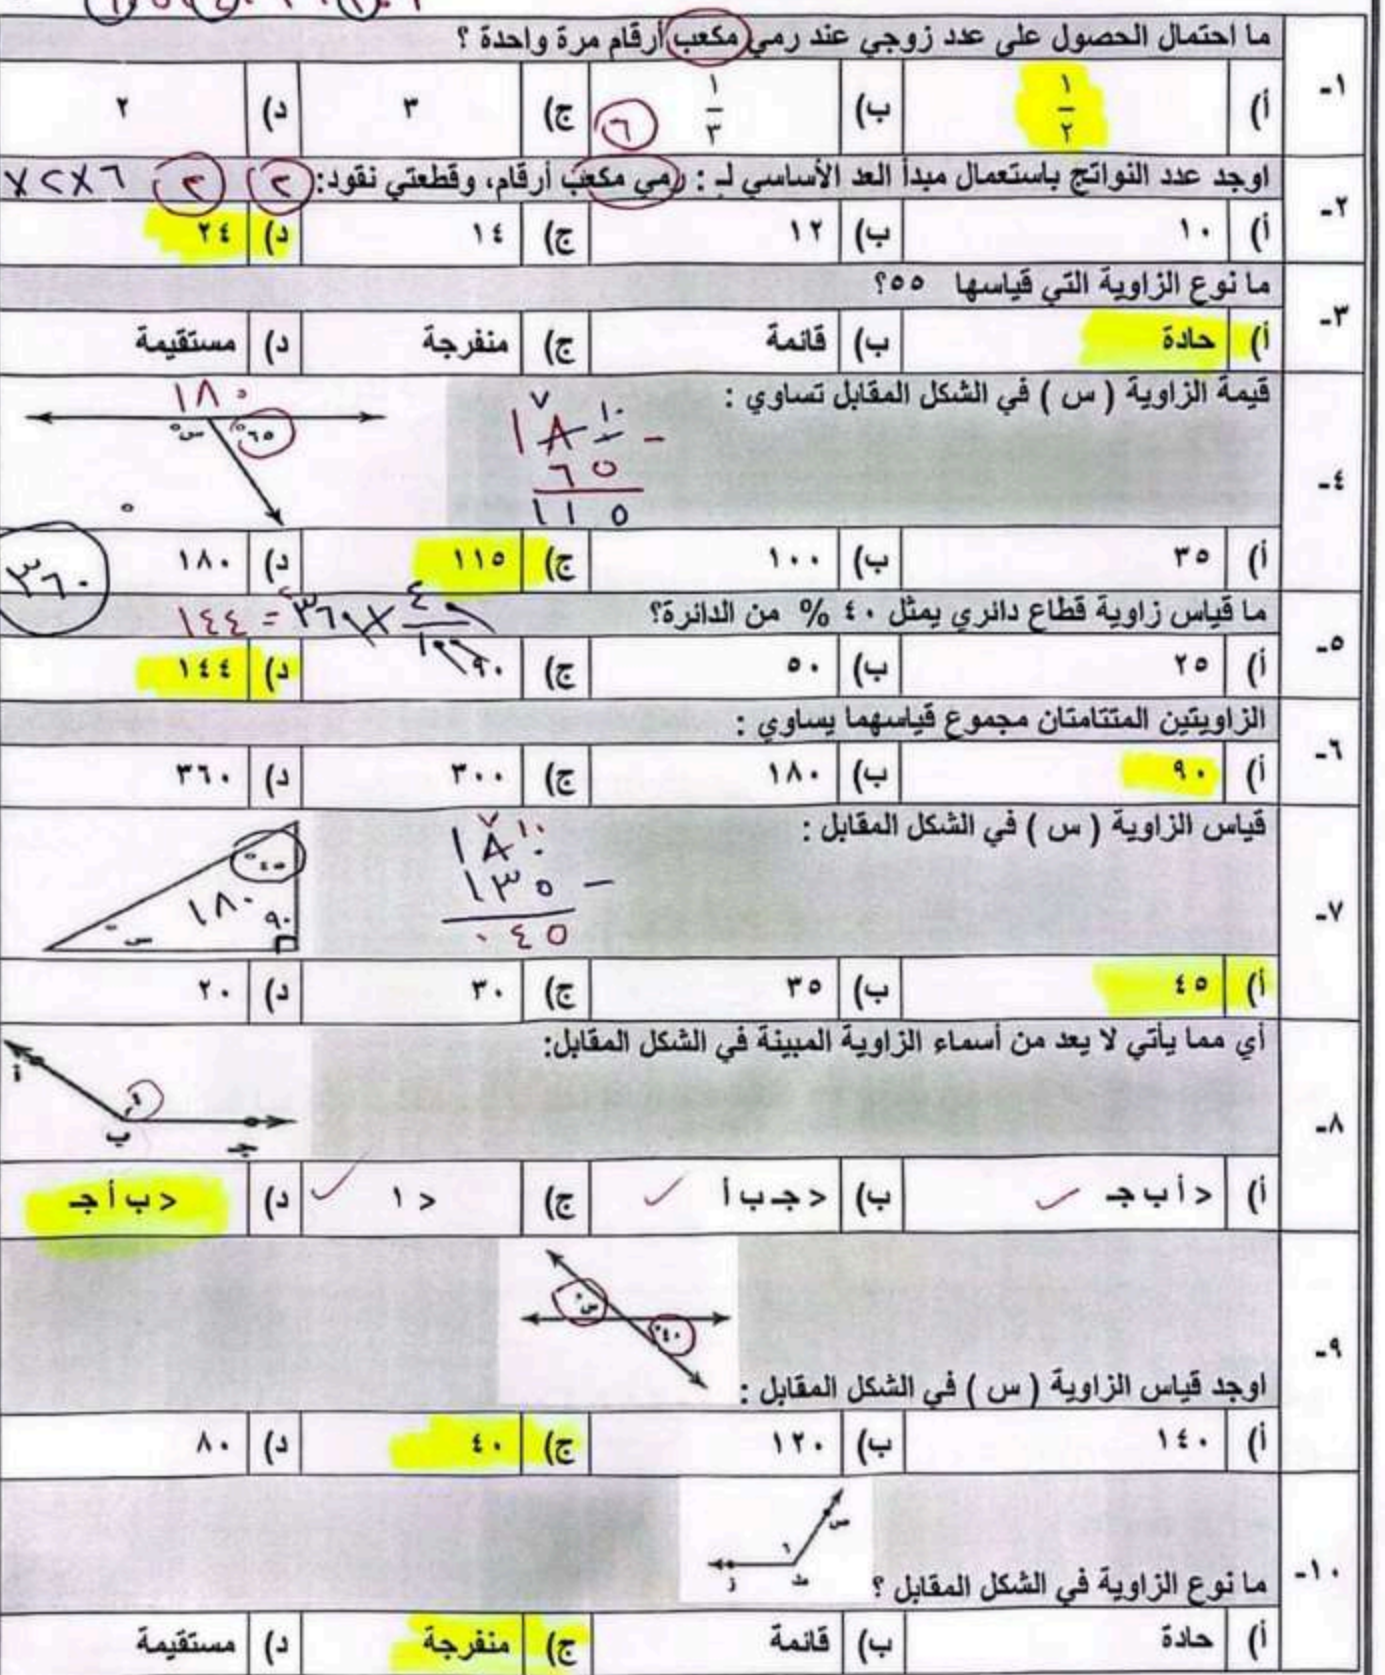 ١- ما احتمال الحصول على عدد زوجي عند رمي مكعب أرقام مرة واحدة ؟
أ) ١/٢ ب) ١/٣ ج) ٣ د) ٢
٦
٢- اوجد عدد النواتج باستعمال مبدأ العد الأساسي لـ : رمي مكعب أرقام، وقطعتي نقود:
أ) ١٠ ب) ١٢ ج) ١٤ د) ٢٤
٣- ما نوع الزاوية التي قياسها ٥٥؟
أ) حادة ب) قائمة ج) منفرجة د) مستقيمة
٤- قيمة الزاوية ( س ) في الشكل المقابل تساوي :
١٨٠
س° ٦٥°
٧ ١٠
١٨٠ -
٦٥
١١٥
أ) ٣٥ ب) ١٠٠ ج) ١١٥ د) ١٨٠
٣٦٠
٥- ما قياس زاوية قطاع دائري يمثل ٤٠ % من الدائرة؟
١٤٤ = ٣٦٠ × ٤٠/١٠٠
أ) ٢٥ ب) ٥٠ ج) ٩٠ د) ١٤٤
٦- الزاويتين المتتامتان مجموع قياسهما يساوي :
أ) ٩٠ ب) ١٨٠ ج) ٣٠٠ د) ٣٦٠
٧- قياس الزاوية ( س ) في الشكل المقابل :
٤٥°
١٨٠
٩٠
س°
٧ ١٠
١٨٠
١٣٥ -
٠٤٥
أ) ٤٥ ب) ٣٥ ج) ٣٠ د) ٢٠
٨- أي مما يأتي لا يعد من أسماء الزاوية المبينة في الشكل المقابل:
أ ١ ب جـ
أ) > أ ب جـ ب) > جـ ب أ ج) > ١ د) > ب أ جـ
س°
٤٠°
٩- اوجد قياس الزاوية ( س ) في الشكل المقابل :
أ) ١٤٠ ب) ١٢٠ ج) ٤٠ د) ٨٠
١٠- ما نوع الزاوية في الشكل المقابل ؟
أ) حادة ب) قائمة ج) منفرجة د) مستقيمة